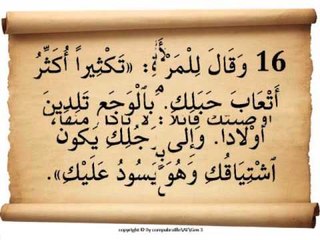 16 وَقَالَ لِلْمَرْأَةِ: «تَكْثِيراً أُكَثِّرُ
أَتْعَابَ حَبَلِكِ. بِالْوَجَعِ تَلِدِينَ
أَوْلادا. وَإِلَى رَجُلِكِ يَكُونُ
ٱشْتِيَاقُكِ وَهُوَ يَسُودُ عَلَيْكِ».
copyright © by